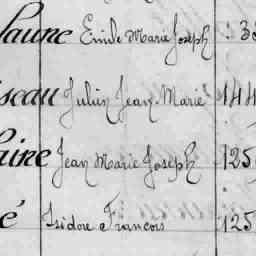 laune Emile Marie Joseph : 33
seau Julien Jean Marie 144
aine Jean Marie Joseph 125
é Isidore François 125